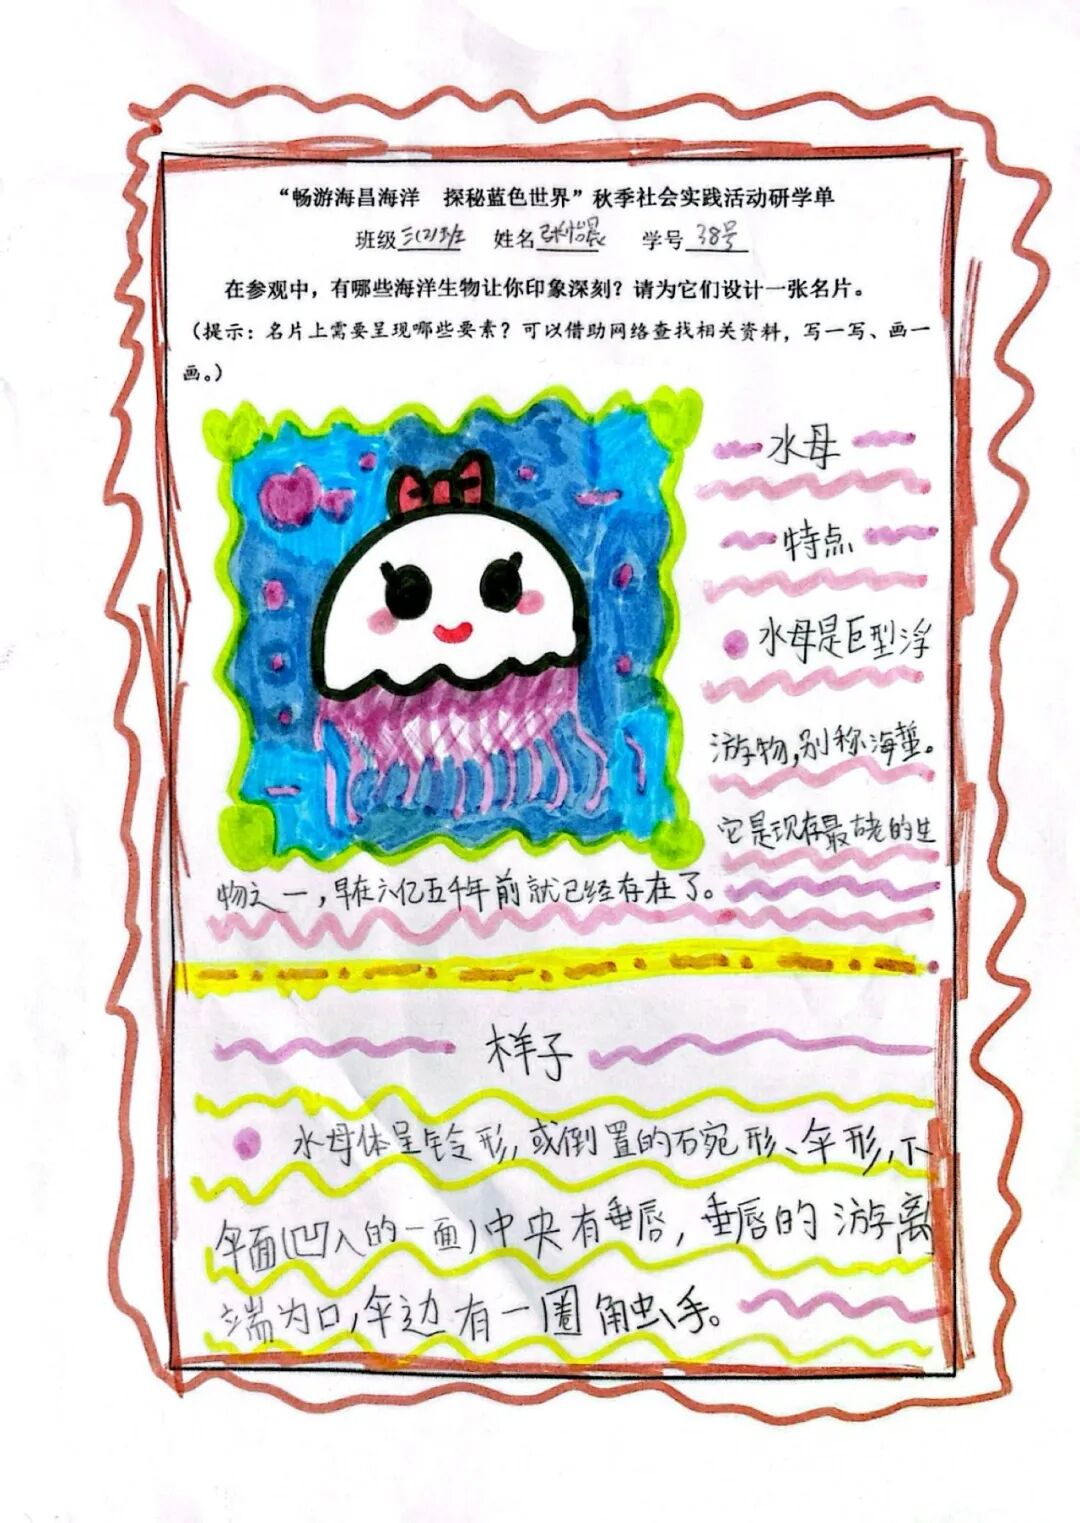 “畅游海昌海洋 探秘蓝色世界”秋季社会实践活动研学单
班级三(2)班 姓名张怡晨 学号38号
在参观中，有哪些海洋生物让你印象深刻？请为它们设计一张名片。
（提示：名片上需要呈现哪些要素？可以借助网络查找相关资料，写一写、画一
画。）
水母
特点
水母是巨型浮
游物，别称海蜇。
它是现存最古老的生
物之一，早在六亿五千年前就已经存在了。
样子
水母体呈铃形，或倒置的石宛形、伞形，下
伞面(凹入的一面)中央有垂唇，垂唇的游离
端为口，伞边有一圈触手。